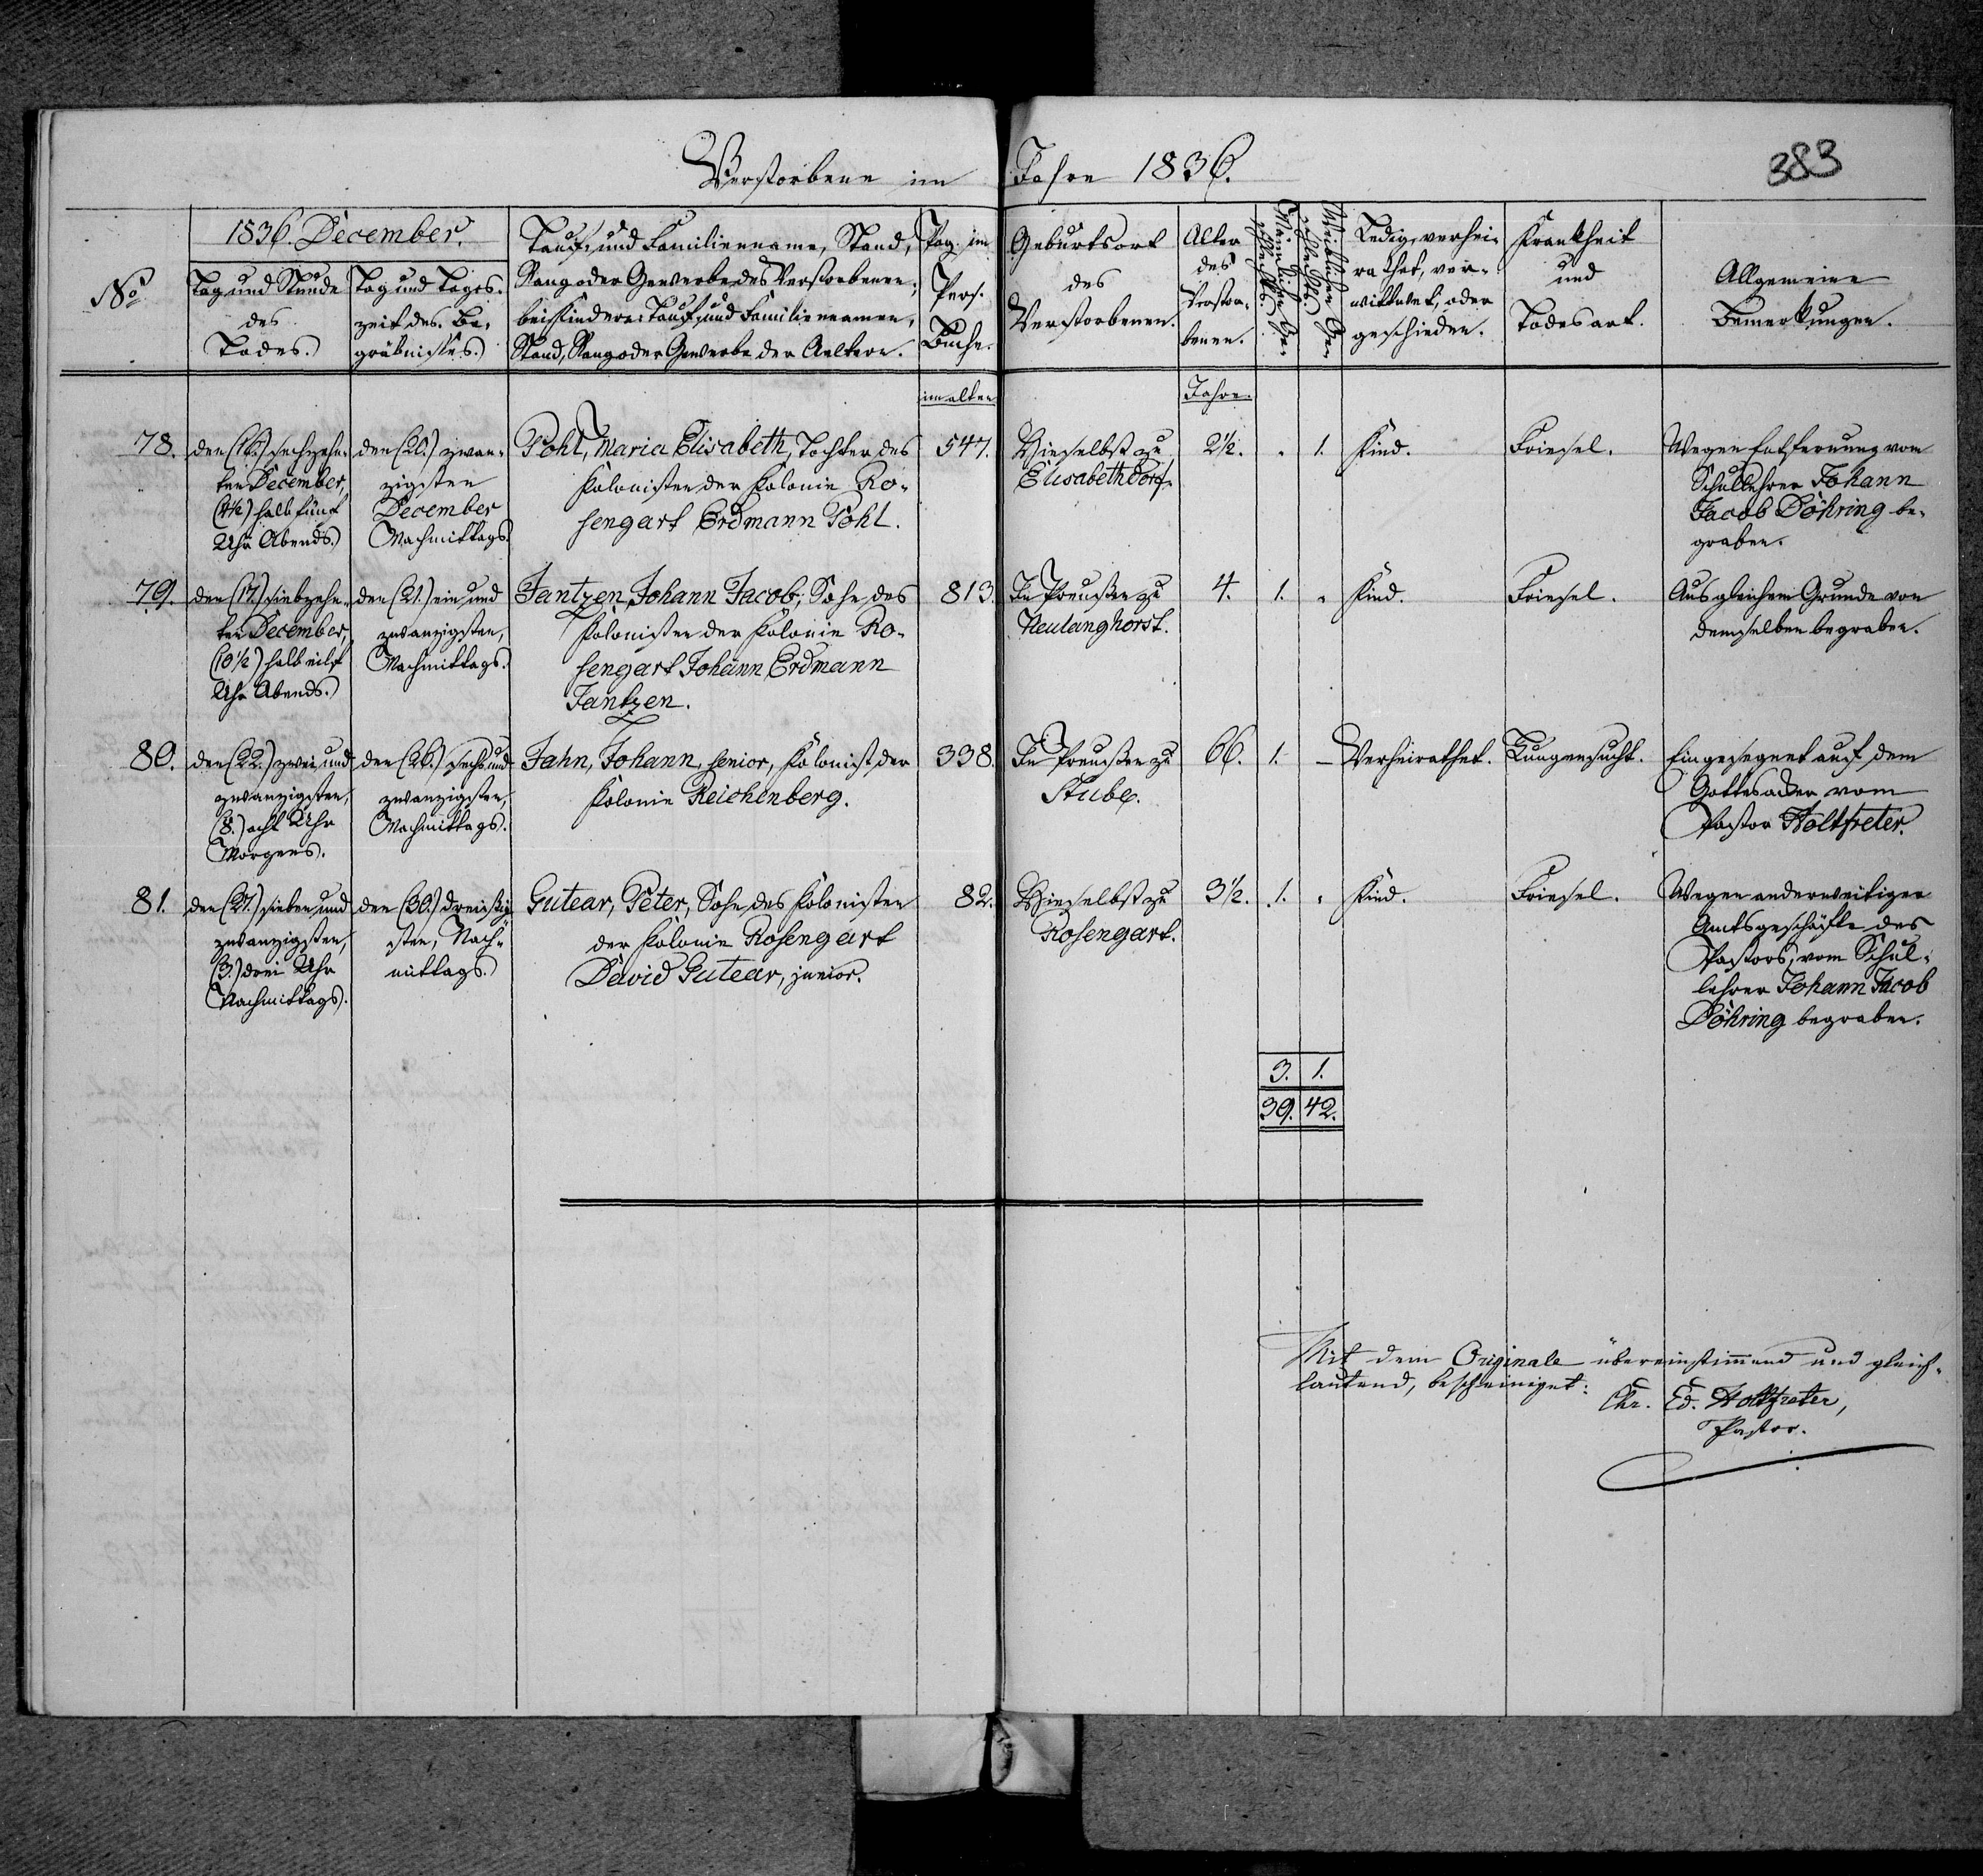 Verstorbene im Jahre 1836.
383
No
1836. December.
Tag und Stunde
des
Todes.
Tag und Tages-
zeit des Be-
gräbnisses.
Tauf- und Familienname, Stand,
Rang oder Gewerbe des Verstorbenen;
bei Kindern: Tauf- und Familiennamen,
Stand, Rang oder Gewerbe der Aeltern.
Pag. im
Pers.
Buche.
Geburtsort
des
Verstorbenen.
Alter
des
Verstor-
benen.
Männlichen Ge-
schlechts.
Weiblichen Ge-
schlechts.
Ledig, verhei-
rathet, ver-
wittwet, oder
geschieden.
Krankheit
und
Todesart.
Allgemeine
Bemerkungen.
im alten
Jahre.
78.
den (16.) sechzehn-
ten December,
(4½) halb fünf
Uhr Abends.
den (20.) zwan-
zigsten
December
Nachmittags.
Pohl, Maria Elisabeth, Tochter des
Kolonisten der Kolonie Ro-
sengart Erdmann Pohl.
547.
Hieselbst zu
Elisabethdorf.
2½.
1.
Kind.
Friesel.
Wegen Entfernung vom
Schullehrer Johann
Jacob Döhring be-
graben.
79.
den (17.) siebzehn-
ten December,
(10½) halb eilf
Uhr Abends.
den (21.) ein und
zwanzigsten,
Nachmittags.
Jantzen, Johann Jacob; Sohn des
Kolonisten der Kolonie Ro-
sengart Johann Erdmann
Jantzen.
813.
In Preußen zu
Neulanghorst.
4.
1.
Kind.
Friesel.
Aus gleichem Grunde von
demselben begraben.
80.
den (22.) zwei und
zwanzigsten,
(8.) acht Uhr
Morgens.
den (26.) sechs und
zwanzigsten,
Nachmittags.
Jahn, Johann, senior, Kolonist der
Kolonie Reichenberg.
338.
In Preußen zu
Stube.
66.
1.
Verheirathet.
Lungensucht.
Eingesegnet auf dem
Gottesacker vom
Pastor Holtfreter.
81.
den (27.) sieben und
zwanzigsten,
(3.) drei Uhr
Nachmittags.
den (30.) dreißig-
sten, Nach-
mittags.
Gutear, Peter, Sohn des Kolonisten
der Kolonie Rosengart
David Gutear, junior.
82.
Hieselbst zu
Rosengart.
3½.
1.
Kind.
Friesel.
Wegen anderweitiger
Amtsgeschäfte des
Pastors, vom Schul-
lehrer Johann Jacob
Döhring begraben.
3. 1.
39. 42.
Mit dem Originale übereinstimmend und gleich-
lautend, bescheiniget:
Chr. Ed. Holtfreter,
Pastor.